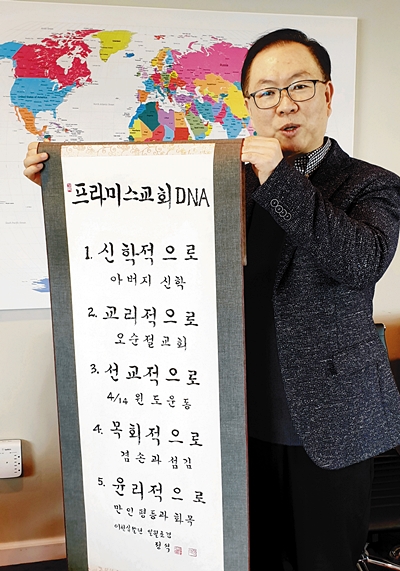 프라미스교회 DNA
1. 신학적으로
아버지 신학
2. 교리적으로
오순절교회
3. 선교적으로
4/14 윈도운동
4. 목회적으로
겸손과 섬김
5. 윤리적으로
만인평등과 화목